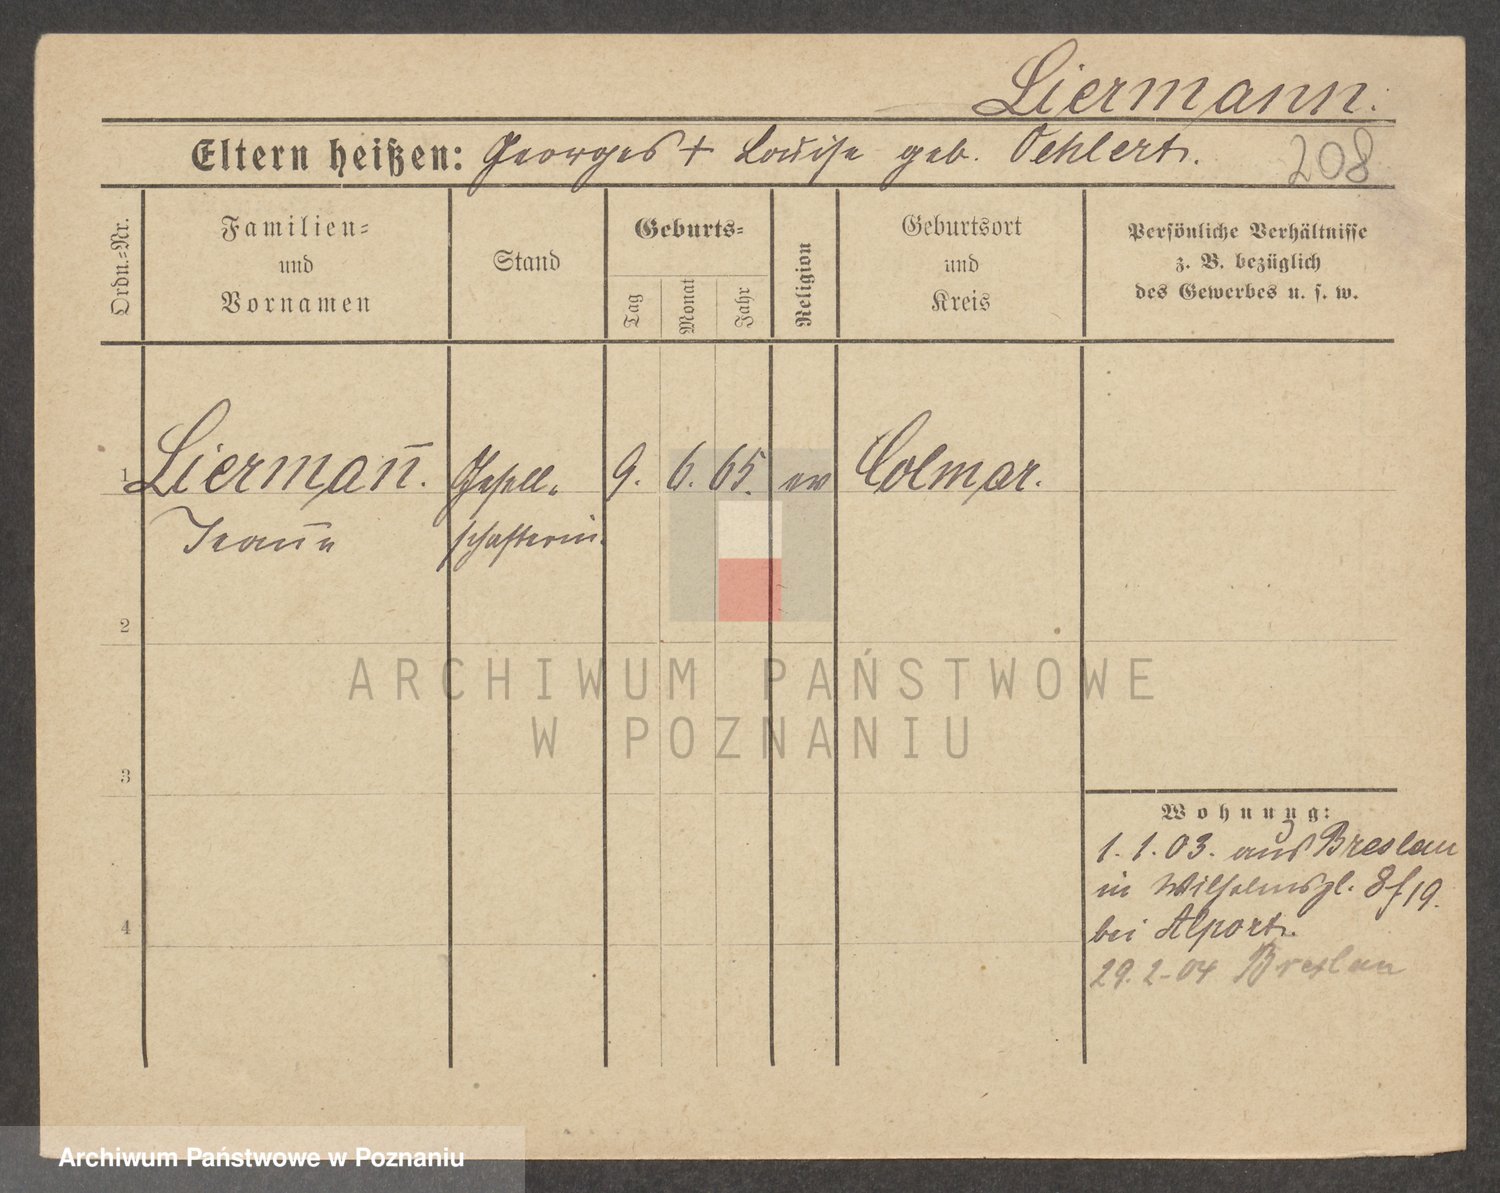 Liermann.
Eltern heißen: Georges + Louise geb. Oehlert.
208
Ordn.-Nr.
Familien-
und
Vornamen
Stand
Geburts-
Tag
Monat
Jahr
Religion
Geburtsort
und
Kreis
Persönliche Verhältnisse
z. B. bezüglich
des Gewerbes u. s. w.
1 Lierman̅. Gesell- 9. 6. 65. ev Colmar.
Jean̅e schafterin.
2
ARCHIWUM PAŃSTWOWE
W POZNANIU
3
Wohnung:
1. 1. 03. aus Breslau
in Wilhelmspl. 8 f 19.
4
bei Alport.
29. 2-04 Breslau
Archiwum Państwowe w Poznaniu